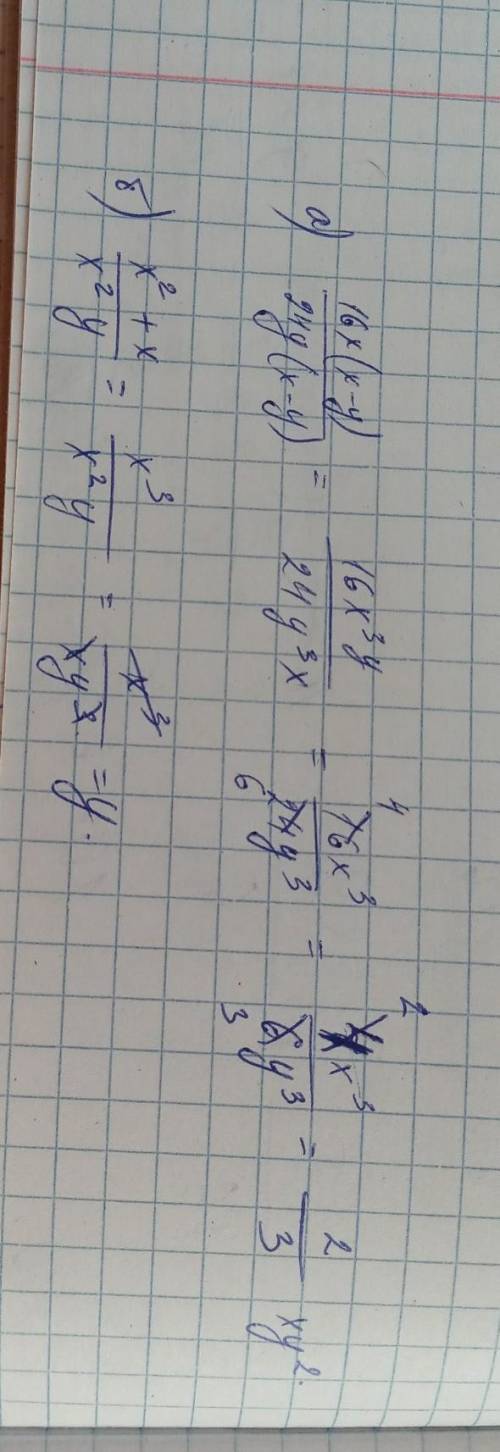 а) 16x(x-y)/24y(x-y) = 16x³y/24y³x = 16x³/24y³ 4 6 = 4x³/6y³ 2 3 = 2/3 xy².
б) x²+x/x²y = x³/x²y = x³/xyx = y.